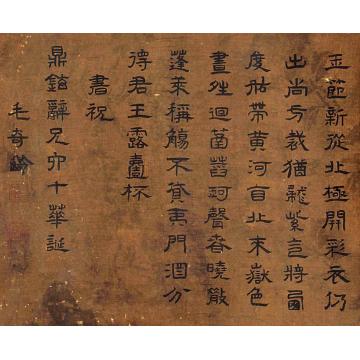 玉節新從北極開彩衣仍
出尚方裁猶龍紫將
度帶黄河自北來嶽色
晝迴菡萏珂聲春曉散
蓬萊稱觴不貸夷門酒分
得君王露壽杯
書祝
鼎鉉辭兄六十華誕
毛奇齡